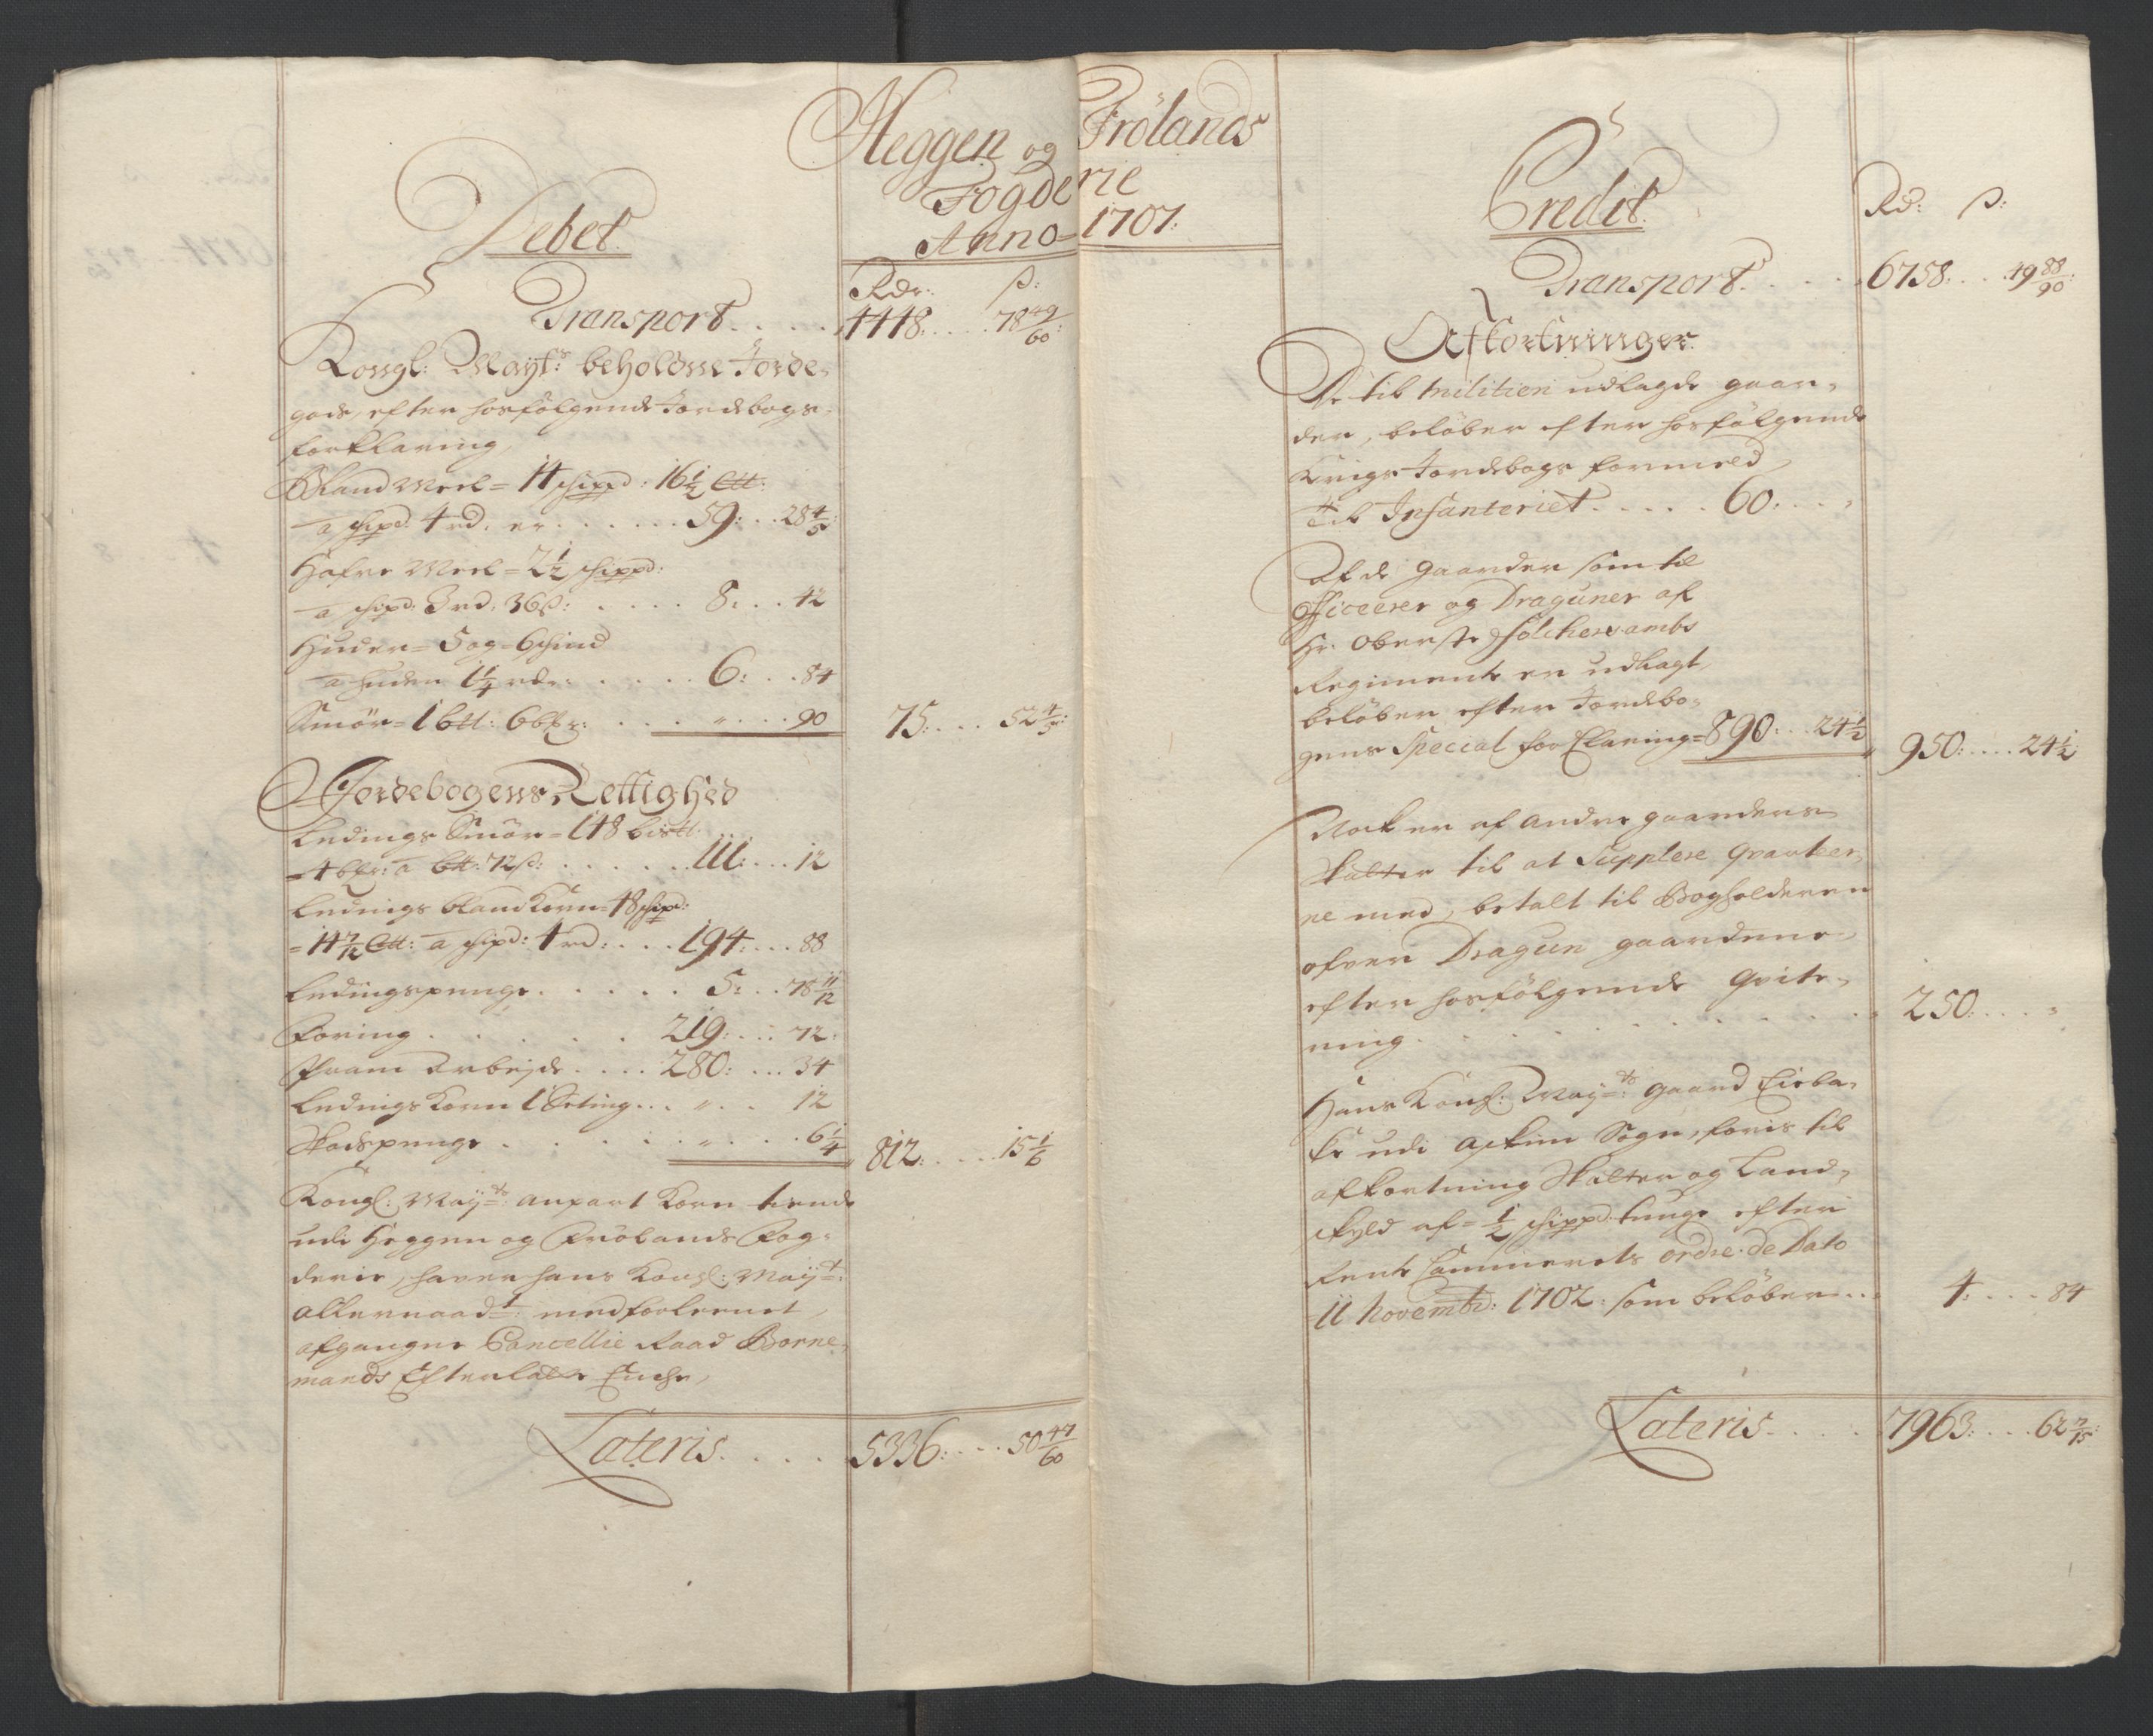 Heggen og Frölands
Fogderie
Anno 1707.
Debet.
Rdr: ß:
Transport . . . . 4448: . . . 78 49/60:
Kongl: Mayts: beholdne Jorde-
gods, efter hosfölgende Jordebogs-
forklaring,
Bland Meel = 14 schippd: 16 1/2 Ltt:
a schipd: 4 rd: er . . . . . . 59: . . 28 4/5
Hafre Meel = 2 1/2 schippd:
a schipd: 3 rd: 36 ß: . . . . . 8: . . 42
Huder = 5 og = 6 schind
a huden 1 1/4 rdr: . . . . . 6: . . 84
Smör = 1 btt: 6 bkr: . . . . " . . . 90 75: . . . 52 4/5:
Jordebogens Rettighed
Ledings Smör = 148 bistt:
= 4 bkr: a btt: 72 ß: . . . . . . 111: . . . 12
Ledings bland Korn = 48 schipd:
= 14 7/12 Ltt: a schipd: 4 rd: . . . 194: . . . 88
Ledingspenge . . . . . . 5: . . 78 11/12
Foring . . . . . . 219: . . . 72:
Pram Arbejde . . . . 280: . . . 34
Ledings Korn 1 Setting . . . " . . 12
Skadspenge . . . . . . " . . . 6 1/4 812: . . . . 15 1/6
Kongl: Mayts: anpart Korn tiende
udi Heggen og Frölands Fog-
derie, haver hans Kongl: Mayt:
allernaadt: medforleenet
afgangne Cancellie Raad Borne-
mands Efterladte Enche,
Lateris . . . . 5336: . . . 50 47/60
Credit.
Rd: ß:
Transport . . . . . 6758: . . . 49 88/90:
Afkortninger.
De til militien udlagde gaar-
der, belöber efter hosfölgende
Krigs Jordebogs formeld
Til Infanteriet . . . . . 60: . . . "
Af de gaarder som til
Officerer og Draguner af
Hr: Oberste
Regimente er udlagt,
belöber efter Jordebo-
gens Special forklaring = 890: . . 24 1/2 950: . . . . 24 1/2
Noch er af andre gaarders
Skatter til at Supplere qvarteer-
ne med, betalt til Bogholderen
ofver Dragun gaardene
efter hosfölgende qvite-
ring . . . . . . . . . . 250: . . . "
Hans Kongl: Mayts: gaard
udi Sogn, foris til
afkortning Skatter og Land-
skyld af = 1/2 schippd: tunge efter
Rente Cammerets ordre de Dato
11 Novembr: 1702: som belöber . . . 4: . . . . 84
Lateris . . . . . 7963: . . . 62 7/15: